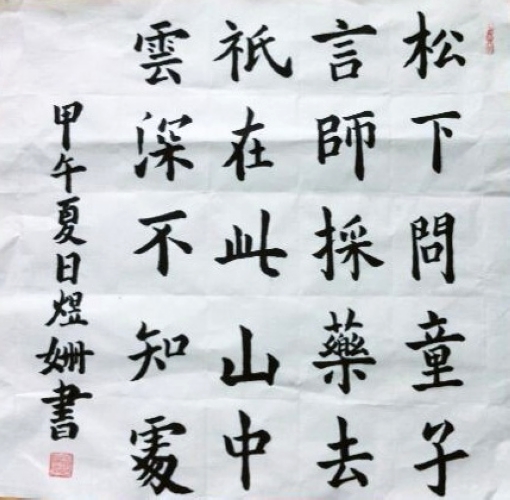 松下問童子
言師採藥去
祇在此山中
雲深不知處
甲午夏日煜姍書